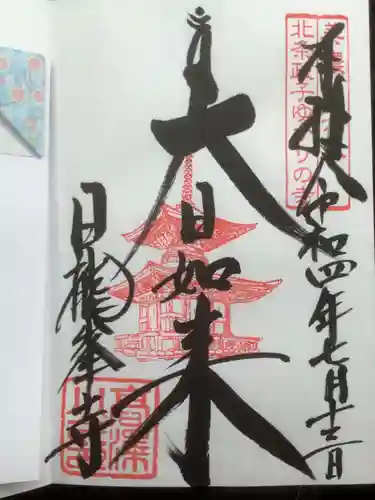 奉拝
令和四年七月十二日
北条政子ゆかりの寺
大日如来
日龍峯寺